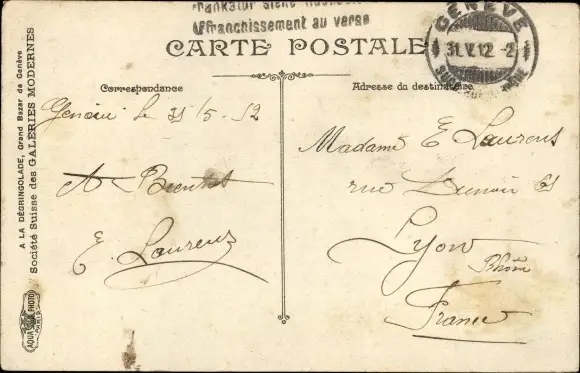 Frankatur siehe Rückseite
Affranchissement au verso
CARTE POSTALE
GENÈVE
31.V.12.-2
Correspondance
Adresse du destinataire
Genève le 31/5-12
A Bientot
E. Laurens
Madame E Laurens
rue Lenoir
Lyon
Rhône
France
A LA DÉGRINGOLADE, Grand Bazar de Genève
Société Suisse des GALERIES MODERNES
AQUA PHOTO
PARIS